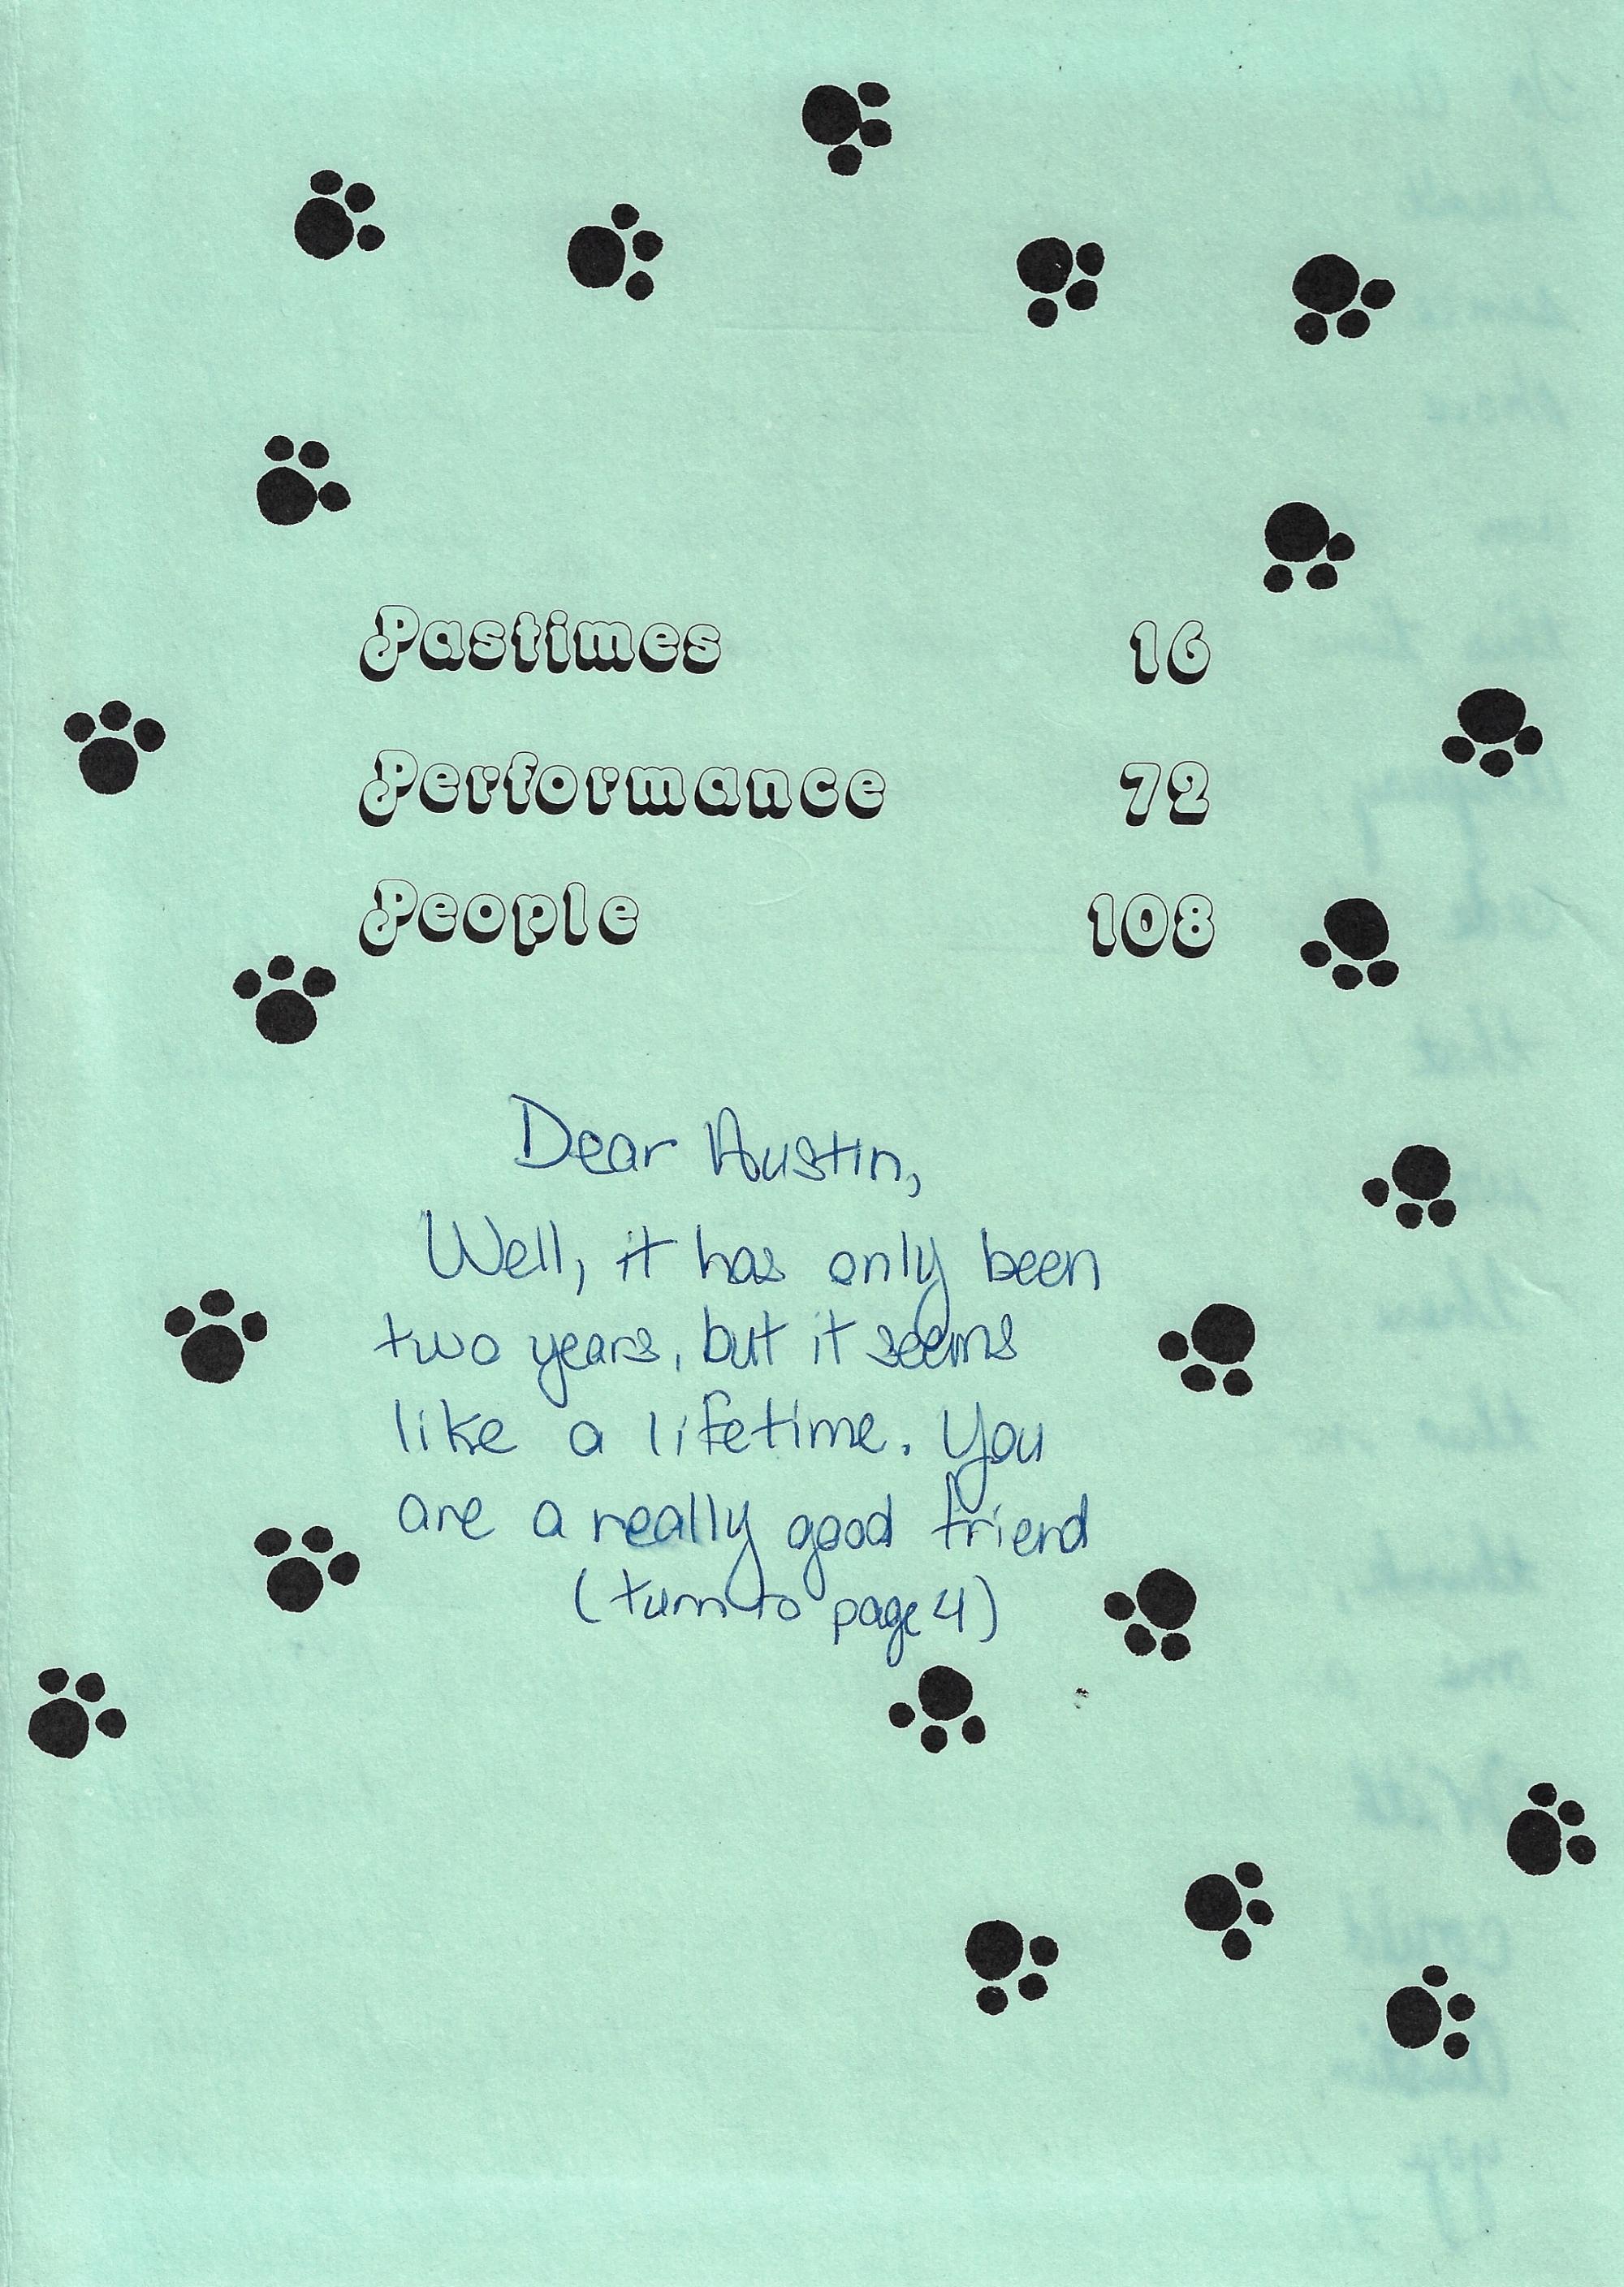 Pastimes 16
Performance 72
People 108
Dear Austin,
Well, it has only been
two years, but it seems
like a lifetime. You
are a really good friend
(turn to page 4)